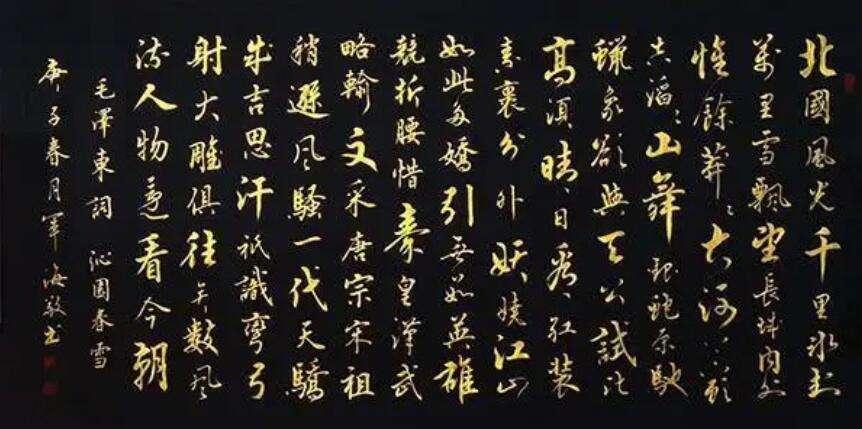 北國風光千里冰封
萬里雪飄望長城内外
惟餘莽〻大河上下頓
失滔〻山舞銀蛇原馳
蠟象欲與天公試比
高須晴、日看、紅裝
素裹分外妖嬈江山
如此多嬌引無數英雄
競折腰惜秦皇漢武
略輸文采唐宗宋祖
稍遜風騷一代天驕
成吉思汗祇識彎弓
射大雕俱往矣數風
流人物還看今朝
毛澤東詞 沁園春雪
庚子春月軍海敬書